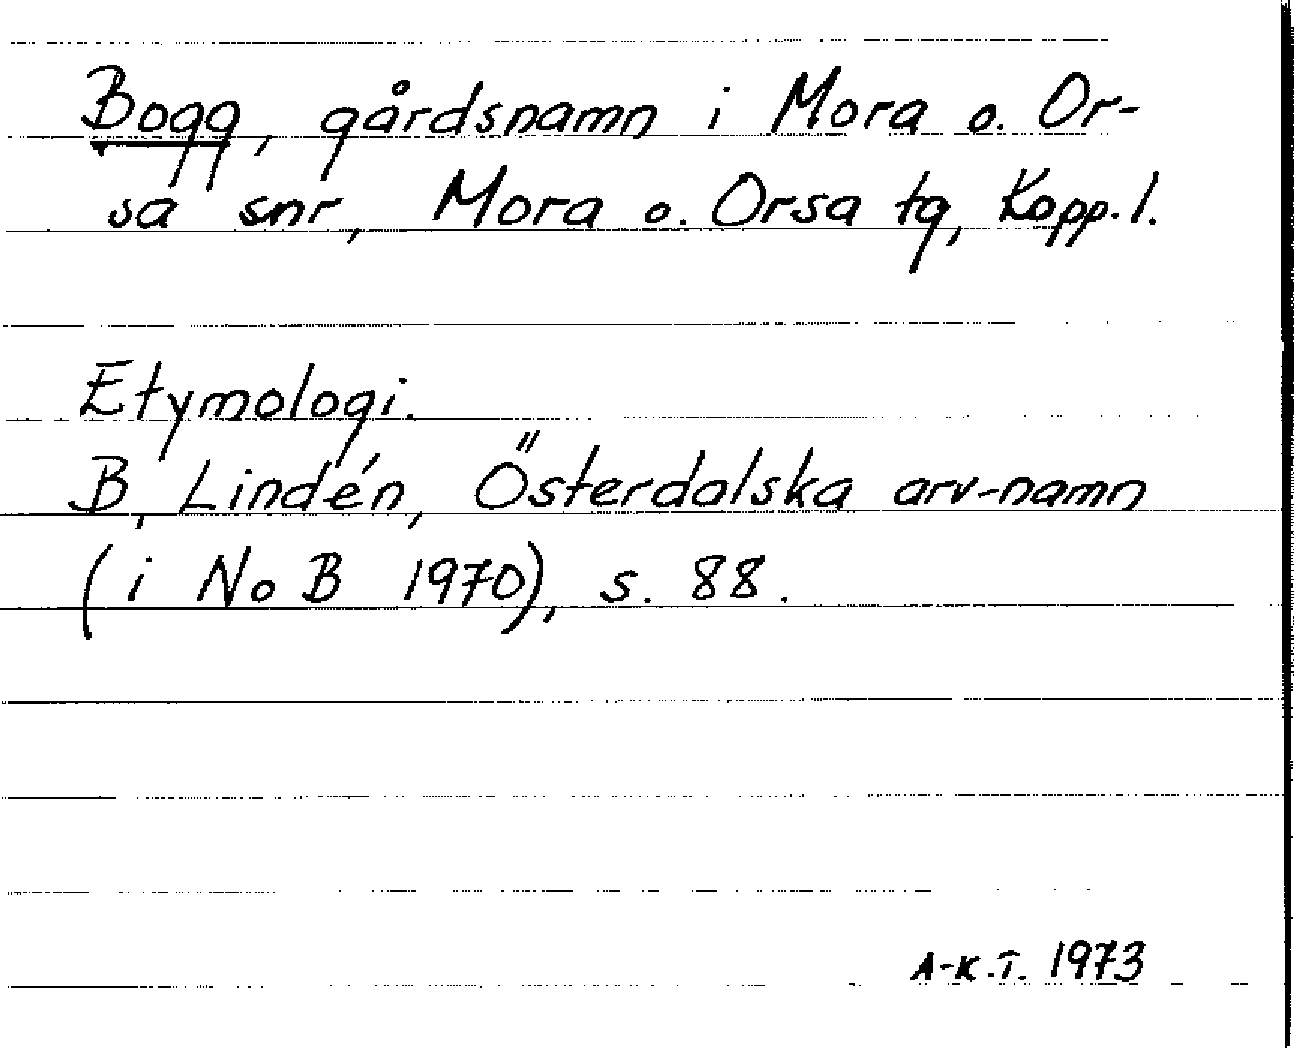 Bogg, gårdsnamn i Mora o. Or-
sa snr, Mora o. Orsa tg, Kopp. l.
Etymologi.
B, Lindén, Österdalska arv-namn
(i NoB 1970), s. 88.
A-K.T. 1973